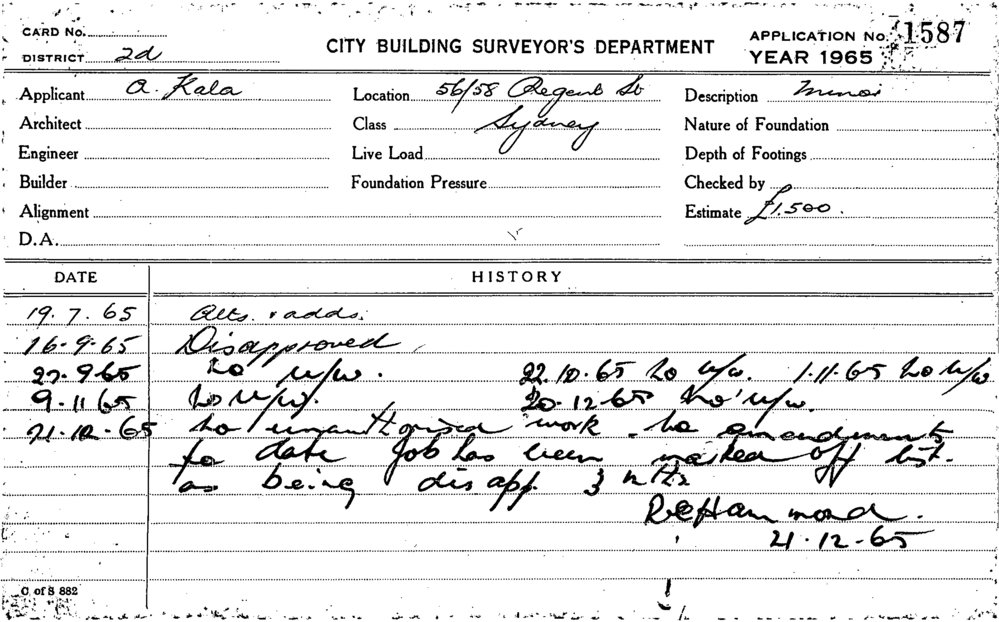 CARD No.
DISTRICT 2d
CITY BUILDING SURVEYOR'S DEPARTMENT
APPLICATION No. 1587
YEAR 1965
Applicant A. Kala Location 56/58 Regent St Description Minor
Architect Class Sydney Nature of Foundation
Engineer Live Load Depth of Footings
Builder Foundation Pressure Checked by
Alignment Estimate £1,500.
D.A.
DATE HISTORY
19.7.65 Alts. & adds.
16.9.65 Disapproved.
27.9.65 no u/w. 22.10.65 no u/w. 1.11.65 no u/w
9.11.65 no u/w. 20.12.65 no u/w.
21.12.65 no unauthorised work - no amendments
to date Job has been marked off list.
as being disapp. 3 mths
R E Hammond.
21.12.65
C of S 882